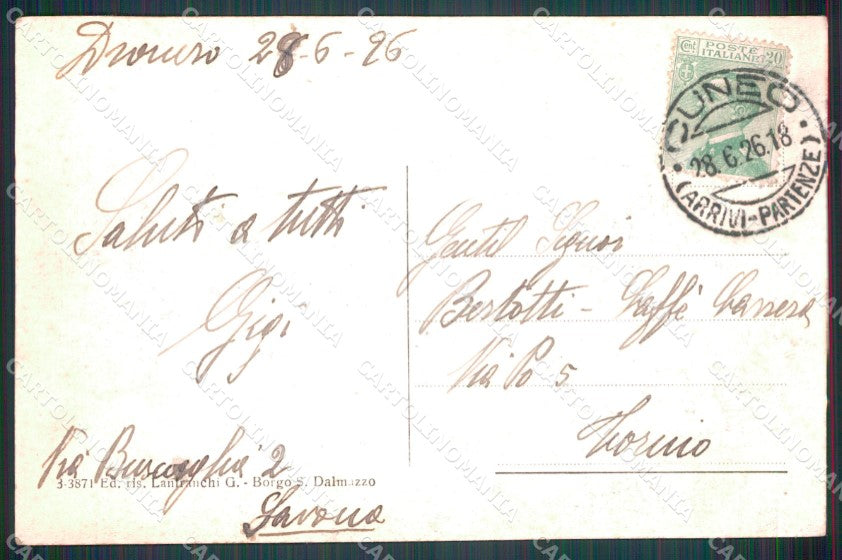 Dronero 28-6-26
Cent POSTE ITALIANE 20
CUNEO
28.6.26.18
(ARRIVI-PARTENZE)
Saluti a tutti
Gigi
Gentil Signor
Bertotti - Caffè
Via Po 5
Torino
Via 2
3-3871 Ed. ris. Lanfranchi G. - Borgo S. Dalmazzo
Savona
CARTOLINOMANIA